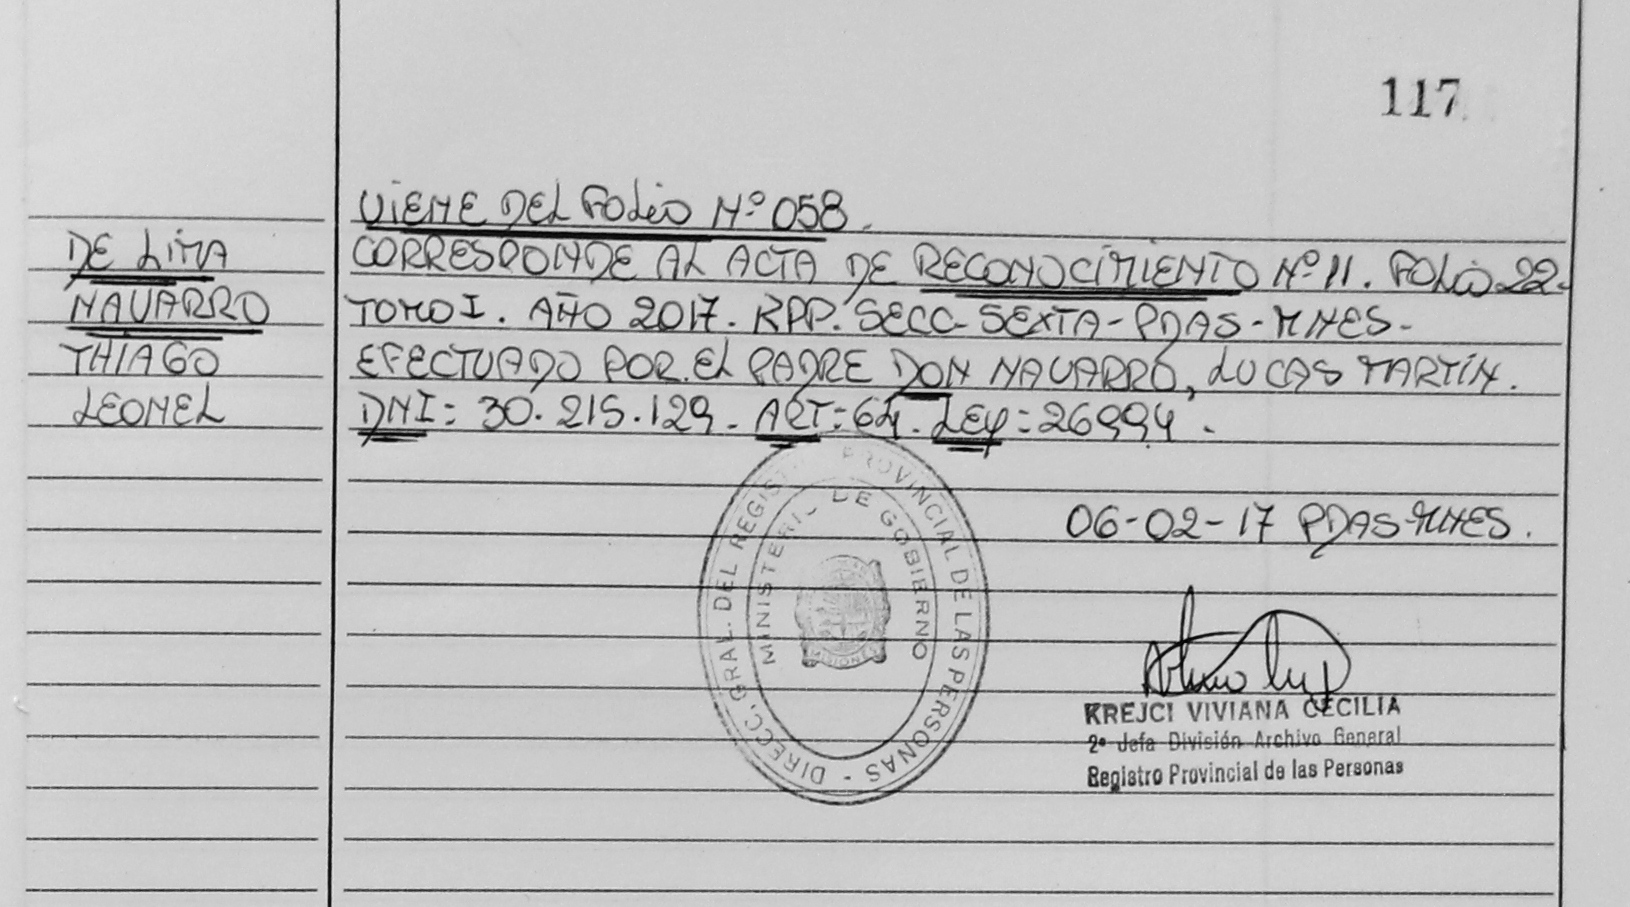 117
VIENE DEL FOLIO Nº 058.
DE LIMA
NAVARRO
THIAGO
LEONEL
CORRESPONDE AL ACTA DE RECONOCIMIENTO Nº 11. FOLIO 22-
TOMO I. AÑO 2017. RPP. SECC- SEXTA- PDAS- MNES-
EFECTUADO POR. EL PADRE DON NAVARRO, LUCAS MARTÍN.
DNI: 30.215.129. ART: 64. LEY: 26994.
06-02-17 PDAS-MNES.
DIRECC. GRAL. DEL REGISTRO PROVINCIAL DE LAS PERSONAS -
MINISTERIO DE GOBIERNO
MISIONES
KREJCI VIVIANA CECILIA
2ª Jefa División Archivo General
Registro Provincial de las Personas